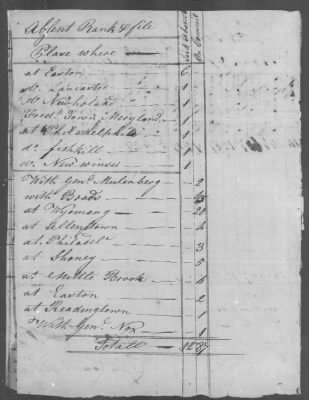 Absent Rank & file
Sick absent
On Comand
Place where
at Easton — 1
do. Lancaster — 1
do. Newholand — 1
Fredk. Town Meryland — 1
at Philadelphia — 1
do. fishkill — 1
do. New winser — 1
With Genl. Mulinberg — 2
with Boads —
at Wyomang — 20
at Allenstown — 4
at Philadel — 3
at Shoney — 5
at Mettle Brook — 4
at Easton — 2
at Readingtown — 1
With Genl. Nox — 1
Totall —